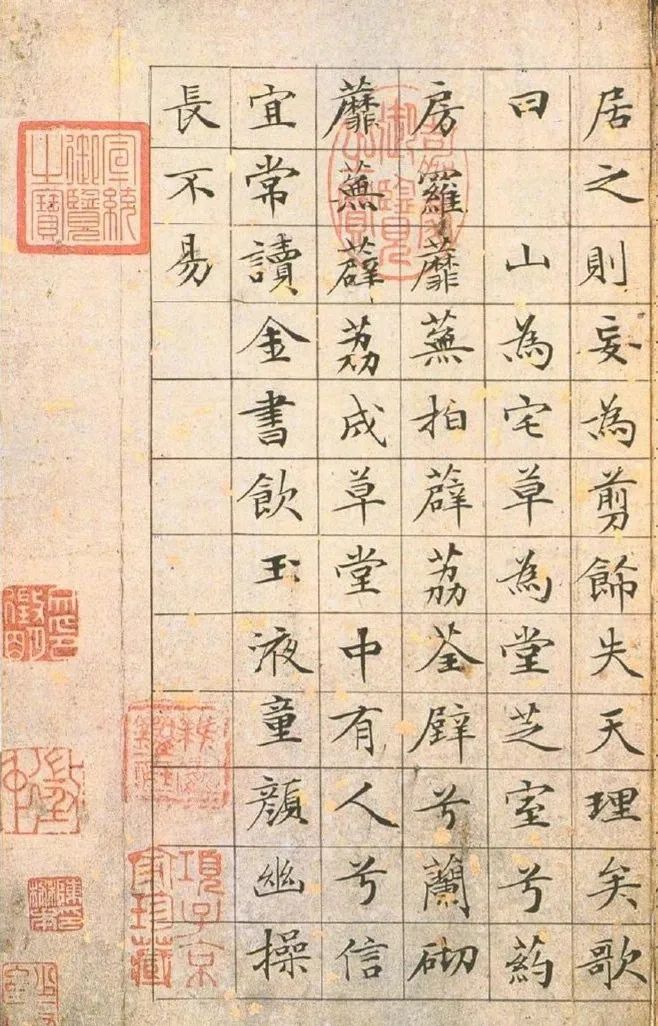 居之則妄為剪餙失天理矣歌
曰 山為宅草為堂芝室兮葯
房羅蘼蕪拍薜荔荃壁兮蘭砌
蘼蕪薜荔成草堂中有人兮信
宜常讀金書飲玉液童顏幽操
長不易
宣統御覽之寶
項子京家珍藏